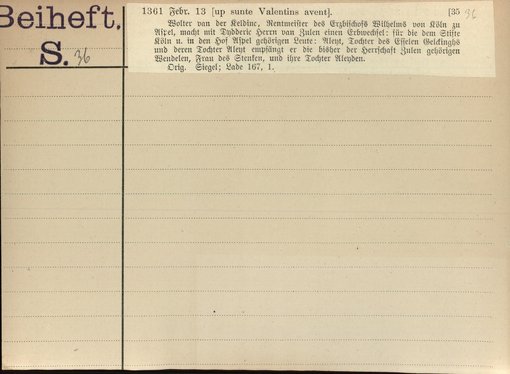 Beiheft.
S. 36
1361 Febr. 13 [up sunte Valentins avent]. [35 36
Wolter van der Keldinc, Rentmeister des Erzbischofs Wilhelms von Köln zu
Aspel, macht mit Dydderic Herrn van Zulen einen Erbwechsel: für die dem Stifte
Köln u. in den Hof Aspel gehörigen Leute: Aleyt, Tochter des Esselen Gelckinghs
und deren Tochter Aleyt empfängt er die bisher der Herrschaft Zulen gehörigen
Wendelen, Frau des Stenken, und ihre Tochter Aleyden.
Orig. Siegel; Lade 167, 1.